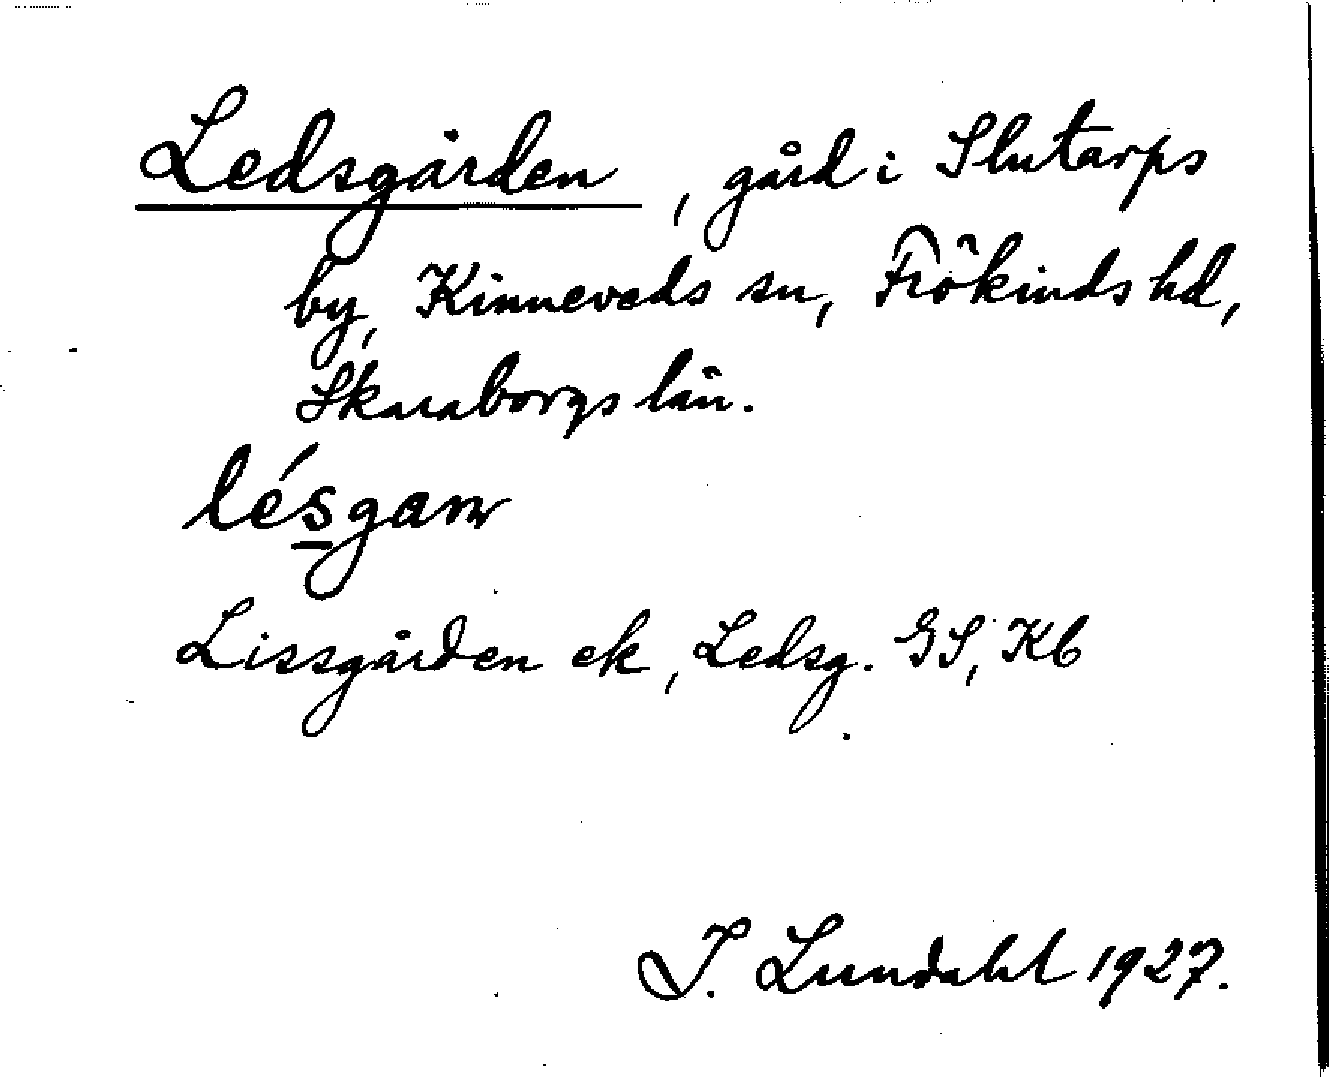 Ledsgården, gård i Slutarps
by, Kinneveds sn, Frökinds hd,
Skaraborgs län.
lésgaɳ
Lissgården ek, Ledsg. GS, Kb
I. Lundahl 1927.